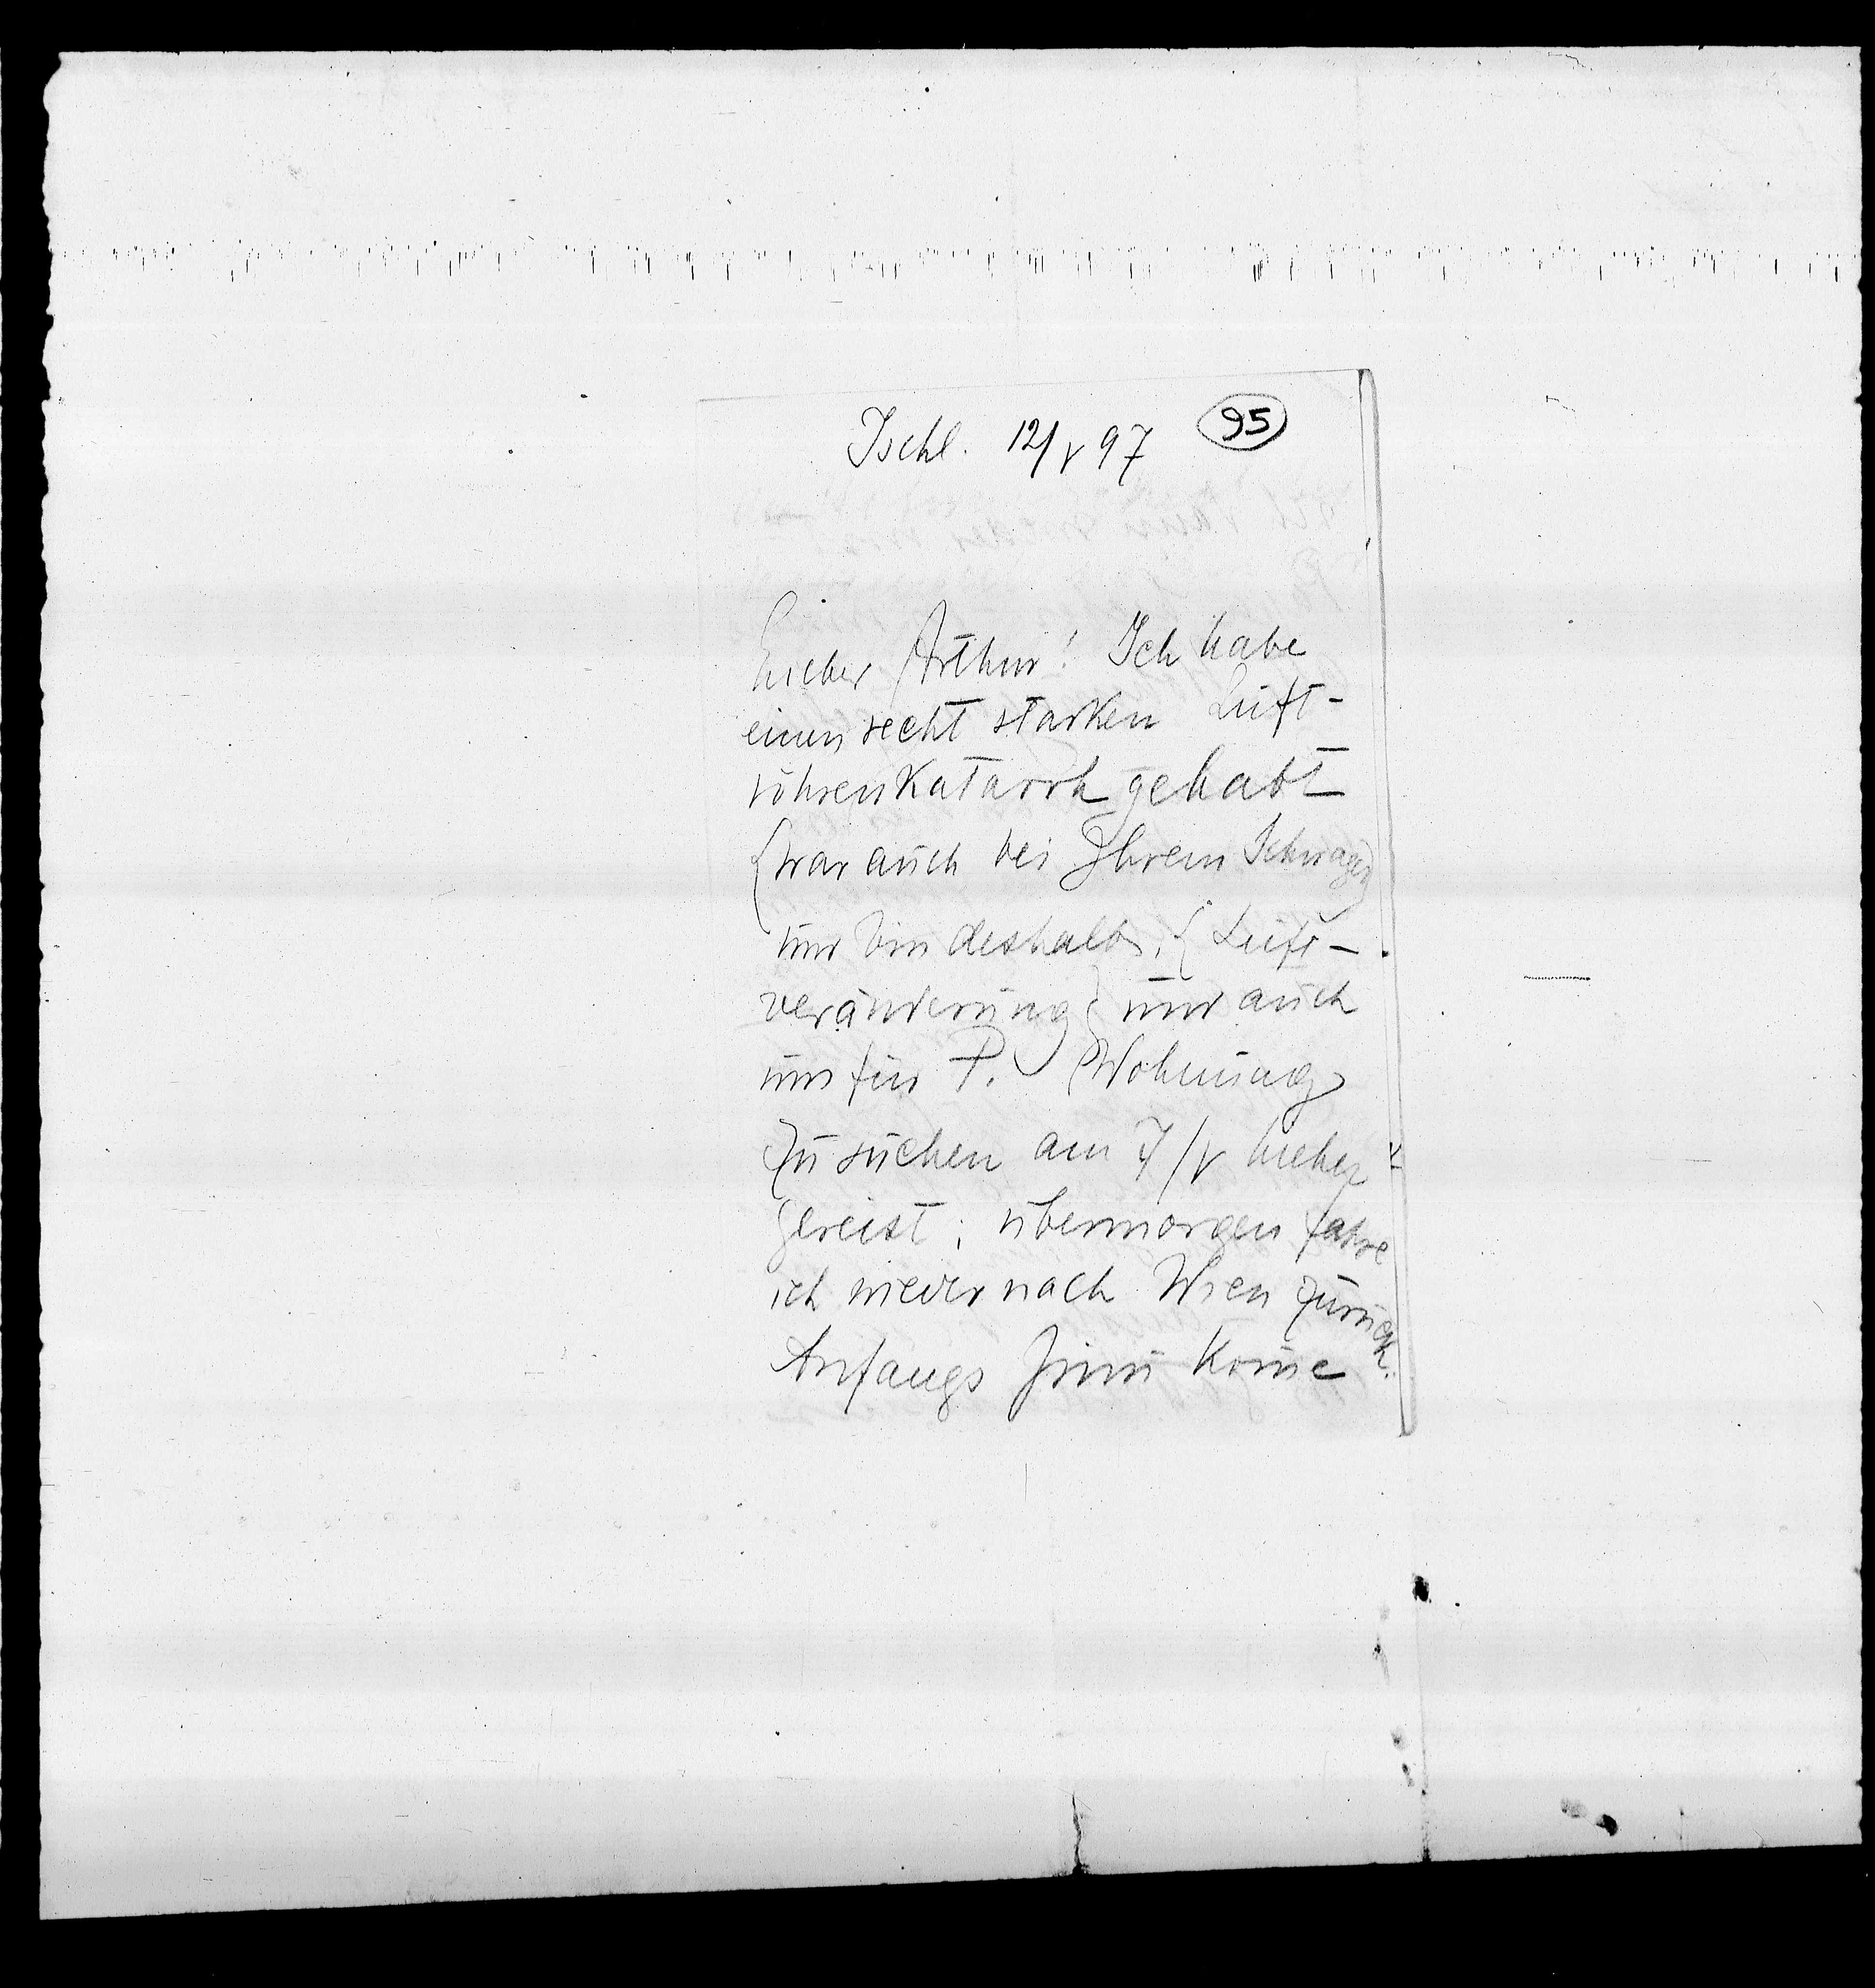 Ischl. 12/V 97 95
Lieber Arthur! Ich habe
einen recht starken Luft-
röhrenkatarrh gehabt
(war auch bei Ihrem Schwager)
und bin deshalb, (Luft-
veränderung) und auch
um für P. Wohnung
zu suchen am 7/V hieher
gereist; übermorgen fahre
ich wieder nach Wien zurück.
Anfangs Juni kome